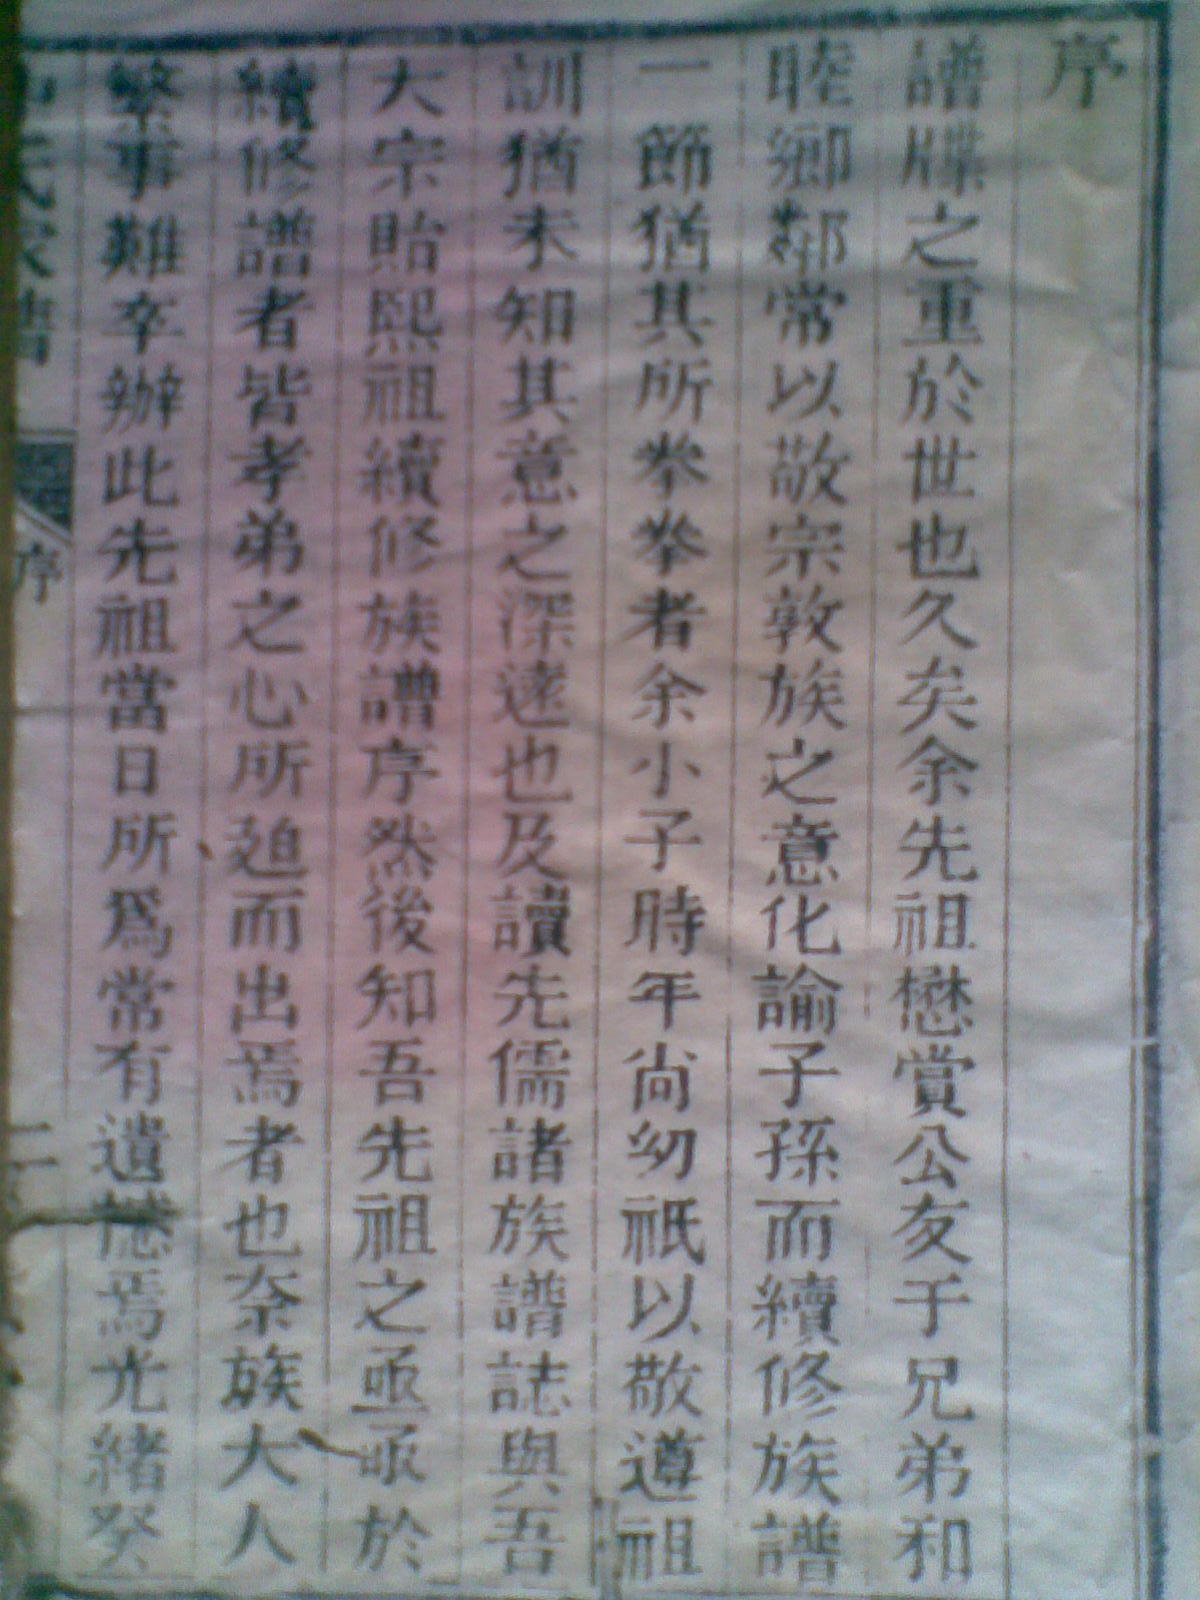 序
譜牒之重於世也久矣余先祖懋賞公友于兄弟和
睦鄉鄰常以敬宗敦族之意化諭子孫而續修族譜
一節猶其所拳拳者余小子時年尚幼祇以敬遵祖
訓猶未知其意之深遠也及讀先儒諸族譜誌與吾
大宗貽熙祖續修族譜序然後知吾先祖之亟亟於
續修譜者皆孝弟之心所廹而出焉者也奈族大人
繁事難卒辦此先祖當日所爲常有遺憾焉光緒癸
氏家譜
序
二